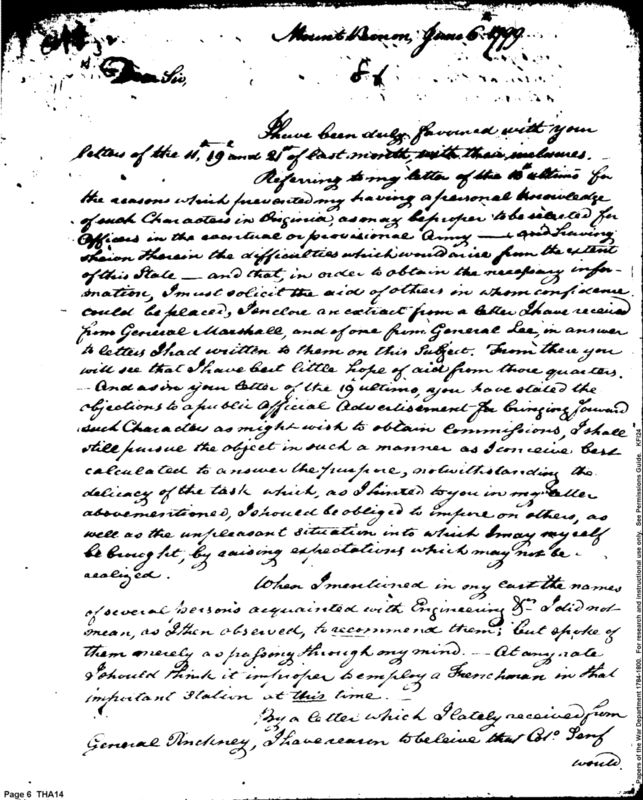 Mount Vernon, June 6th 1799
Dear Sir,
I have been duly favoured with your
letters of the 11th, 19th and 21st of last month, with their inclosures.
Referring to my letter of the ultimo for
the reasons which prevented my having a personal knowledge
of such Characters in Virginia, as may be proper to be selected for
Officers in the eventual or provisional Army — and having
shewn therein the difficulties which would arise from the extent
of this State — and that, in order to obtain the necessary infor-
mation, I must solicit the aid of others in whom confidence
could be placed, I enclose an extract from a letter I have received
from General Marshall, and of one from General Lee, in answer
to letters I had written to them on this Subject. From these you
will see that I have but little hope of aid from those quarters.
— And as in your letter of the 19 ultimo, you have stated the
objections to a public Official Advertisement for bringing forward
such Characters as might wish to obtain Commissions, I shall
still pursue the object in such a manner as I conceive best
calculated to answer the purpose, notwithstanding the
delicacy of the task which, as I hinted to you in my letter
abovementioned, I should be obliged to impose on others, as
well as the unpleasant situation into which I may myself
be brought, by raising expectations which may not be
realized.
When I mentioned in my last the names
of several persons acquainted with Engineering &ca. I did not
mean, as I then observed, to recommend them; but spoke of
them merely as passing through my mind. — At any rate
I should think it improper to employ a Frenchman in that
important Station at this time. —
By a letter which I lately received from
General Pinckney, I have reason to beleive that Colo. Senf
would
Page 6 THA14
Papers of the War Department 1784-1800. For research and instructional use only. See Permissions Guide. KFI24